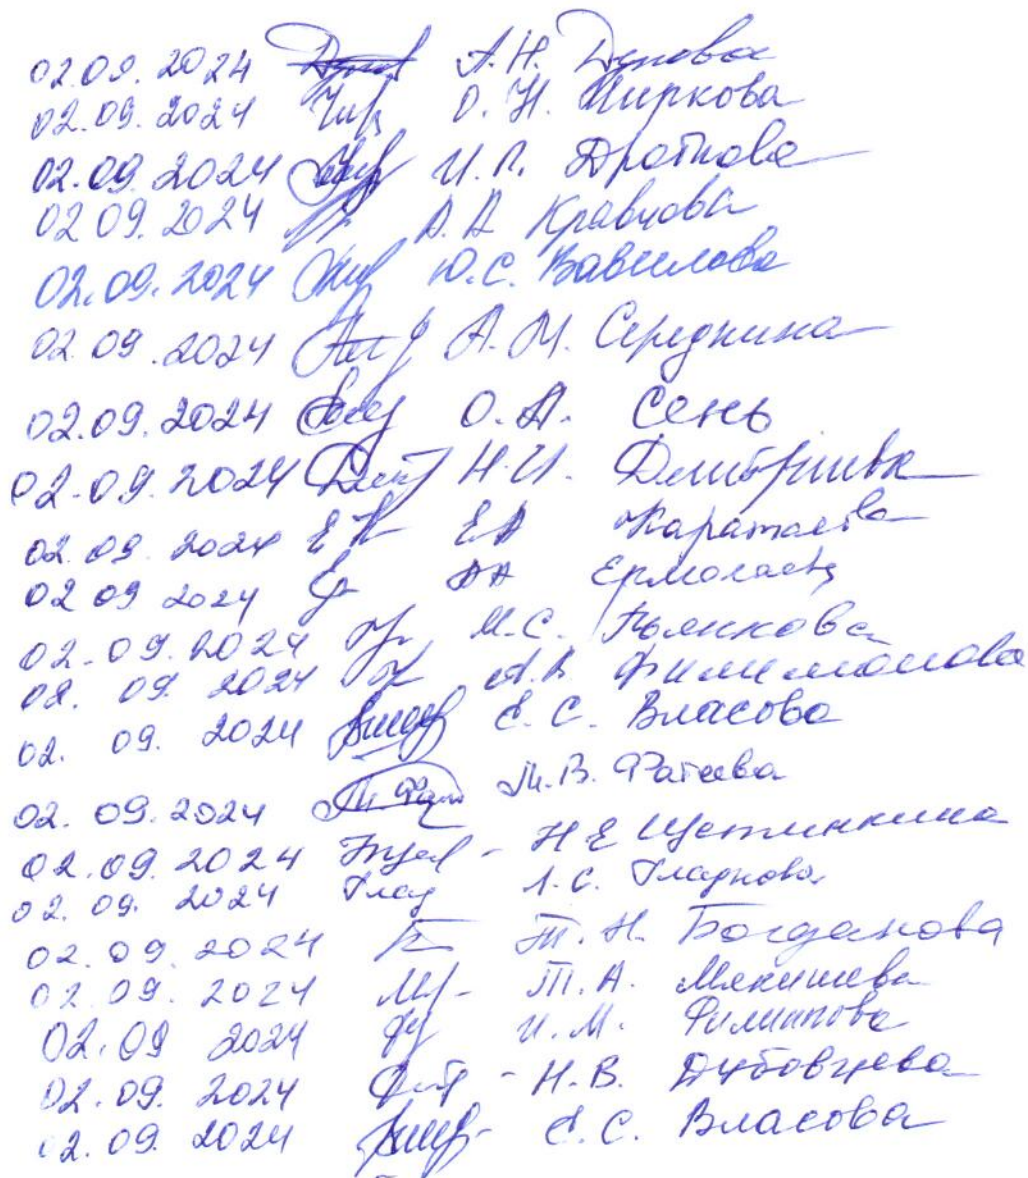 02.09.2024 А.Н. Дунова
02.09.2024 О.Н. Чиркова
02.09.2024 И.П. Дротнова
02.09.2024 А.А Кравцова
02.09.2024 Ю.С. Вавилова
02.09.2024 А.М. Середкина
02.09.2024 О.А. Сень
02.09.2024 Н.И. Дмитриева
02.09.2024 Е А Каратаева
02 09 2024 АА
02.09.2024 М.С.
02. 09. 2024 А.В. Филимонова
02. 09. 2024 Е.С. Власова
02. 09. 2024 М.В. Фатеева
02.09.2024 Н Е Щетинкина
02. 09. 2024 Л.С. Гладкова
02.09.2024 Т.Н. Богданова
02.09. 2024 Т.А. Мякишева
02.09 2024 И.М. Филиппова
02.09. 2024 Н.В. Дубовцева
02.09. 2024 Е.С. Власова